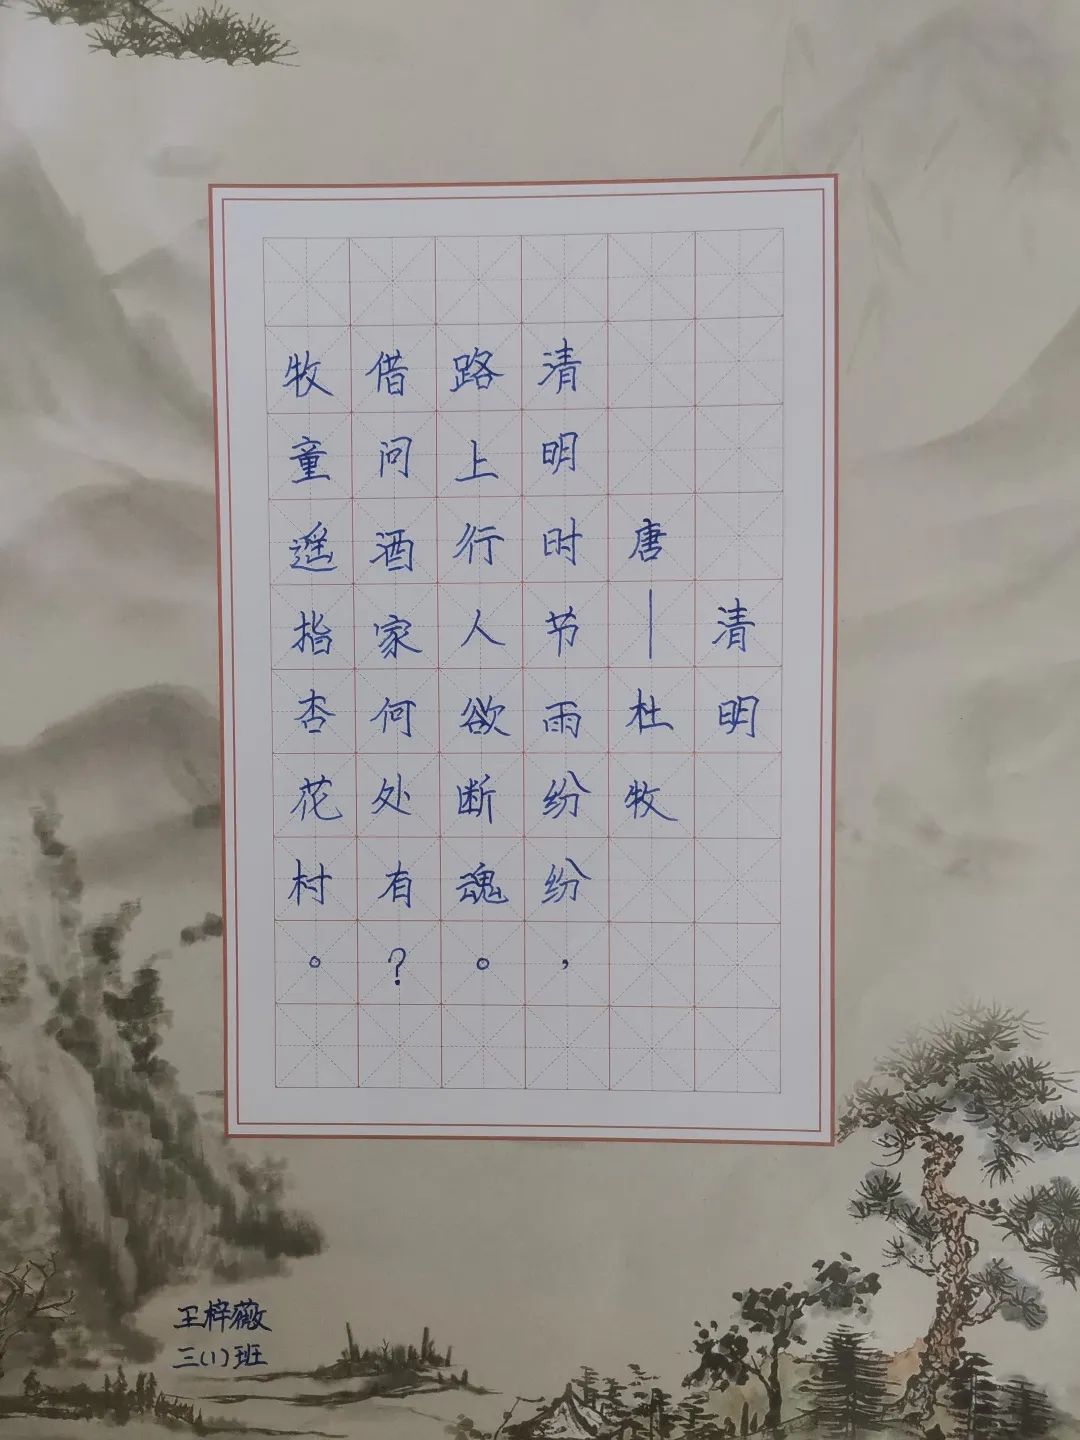 清明
唐—杜牧
清明时节雨纷纷，
路上行人欲断魂。
借问酒家何处有？
牧童遥指杏花村。
王梓薇
三(1)班